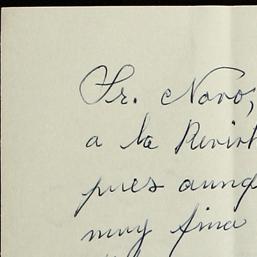 Sr. Novo,
a la Revist
pues aunq
muy fina